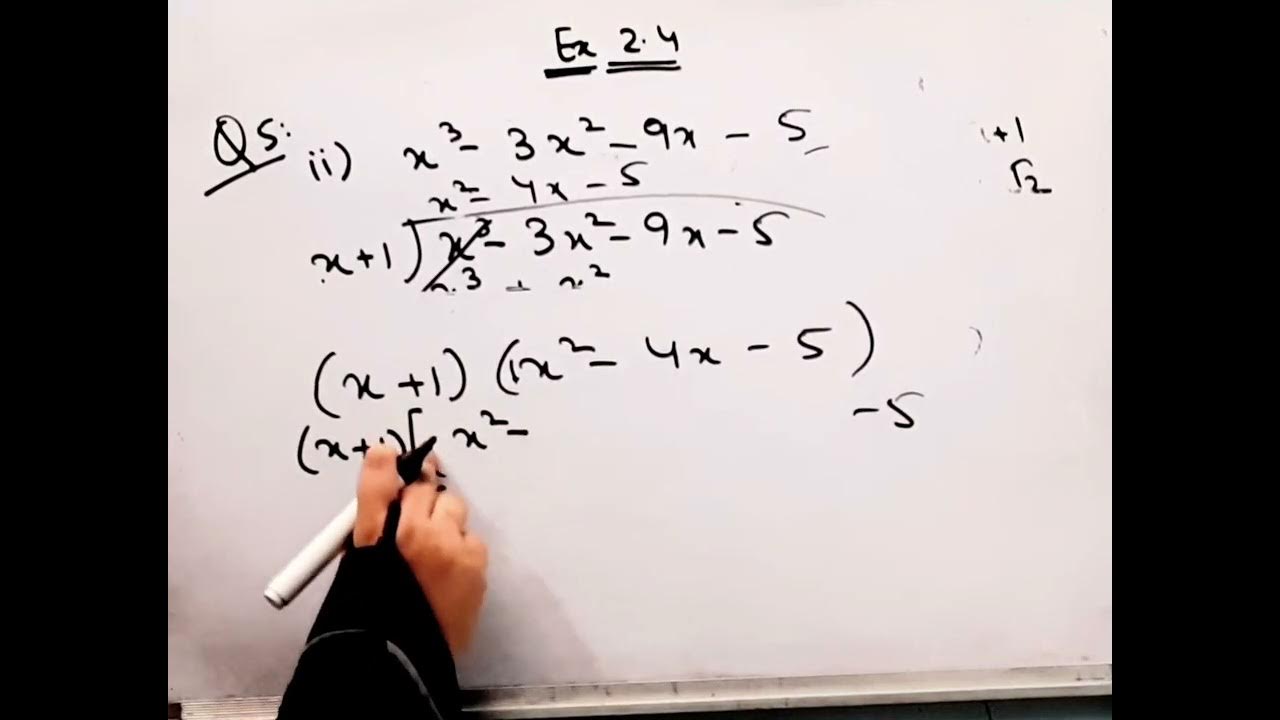 Ex 2.4
Q5: ii) x³ - 3x² - 9x - 5
+1
√2
x² - 4x - 5
x+1) x³ - 3x² - 9x - 5
x³ + x²
(x+1) (1x² - 4x - 5)
-5
(x+1)[ x² -